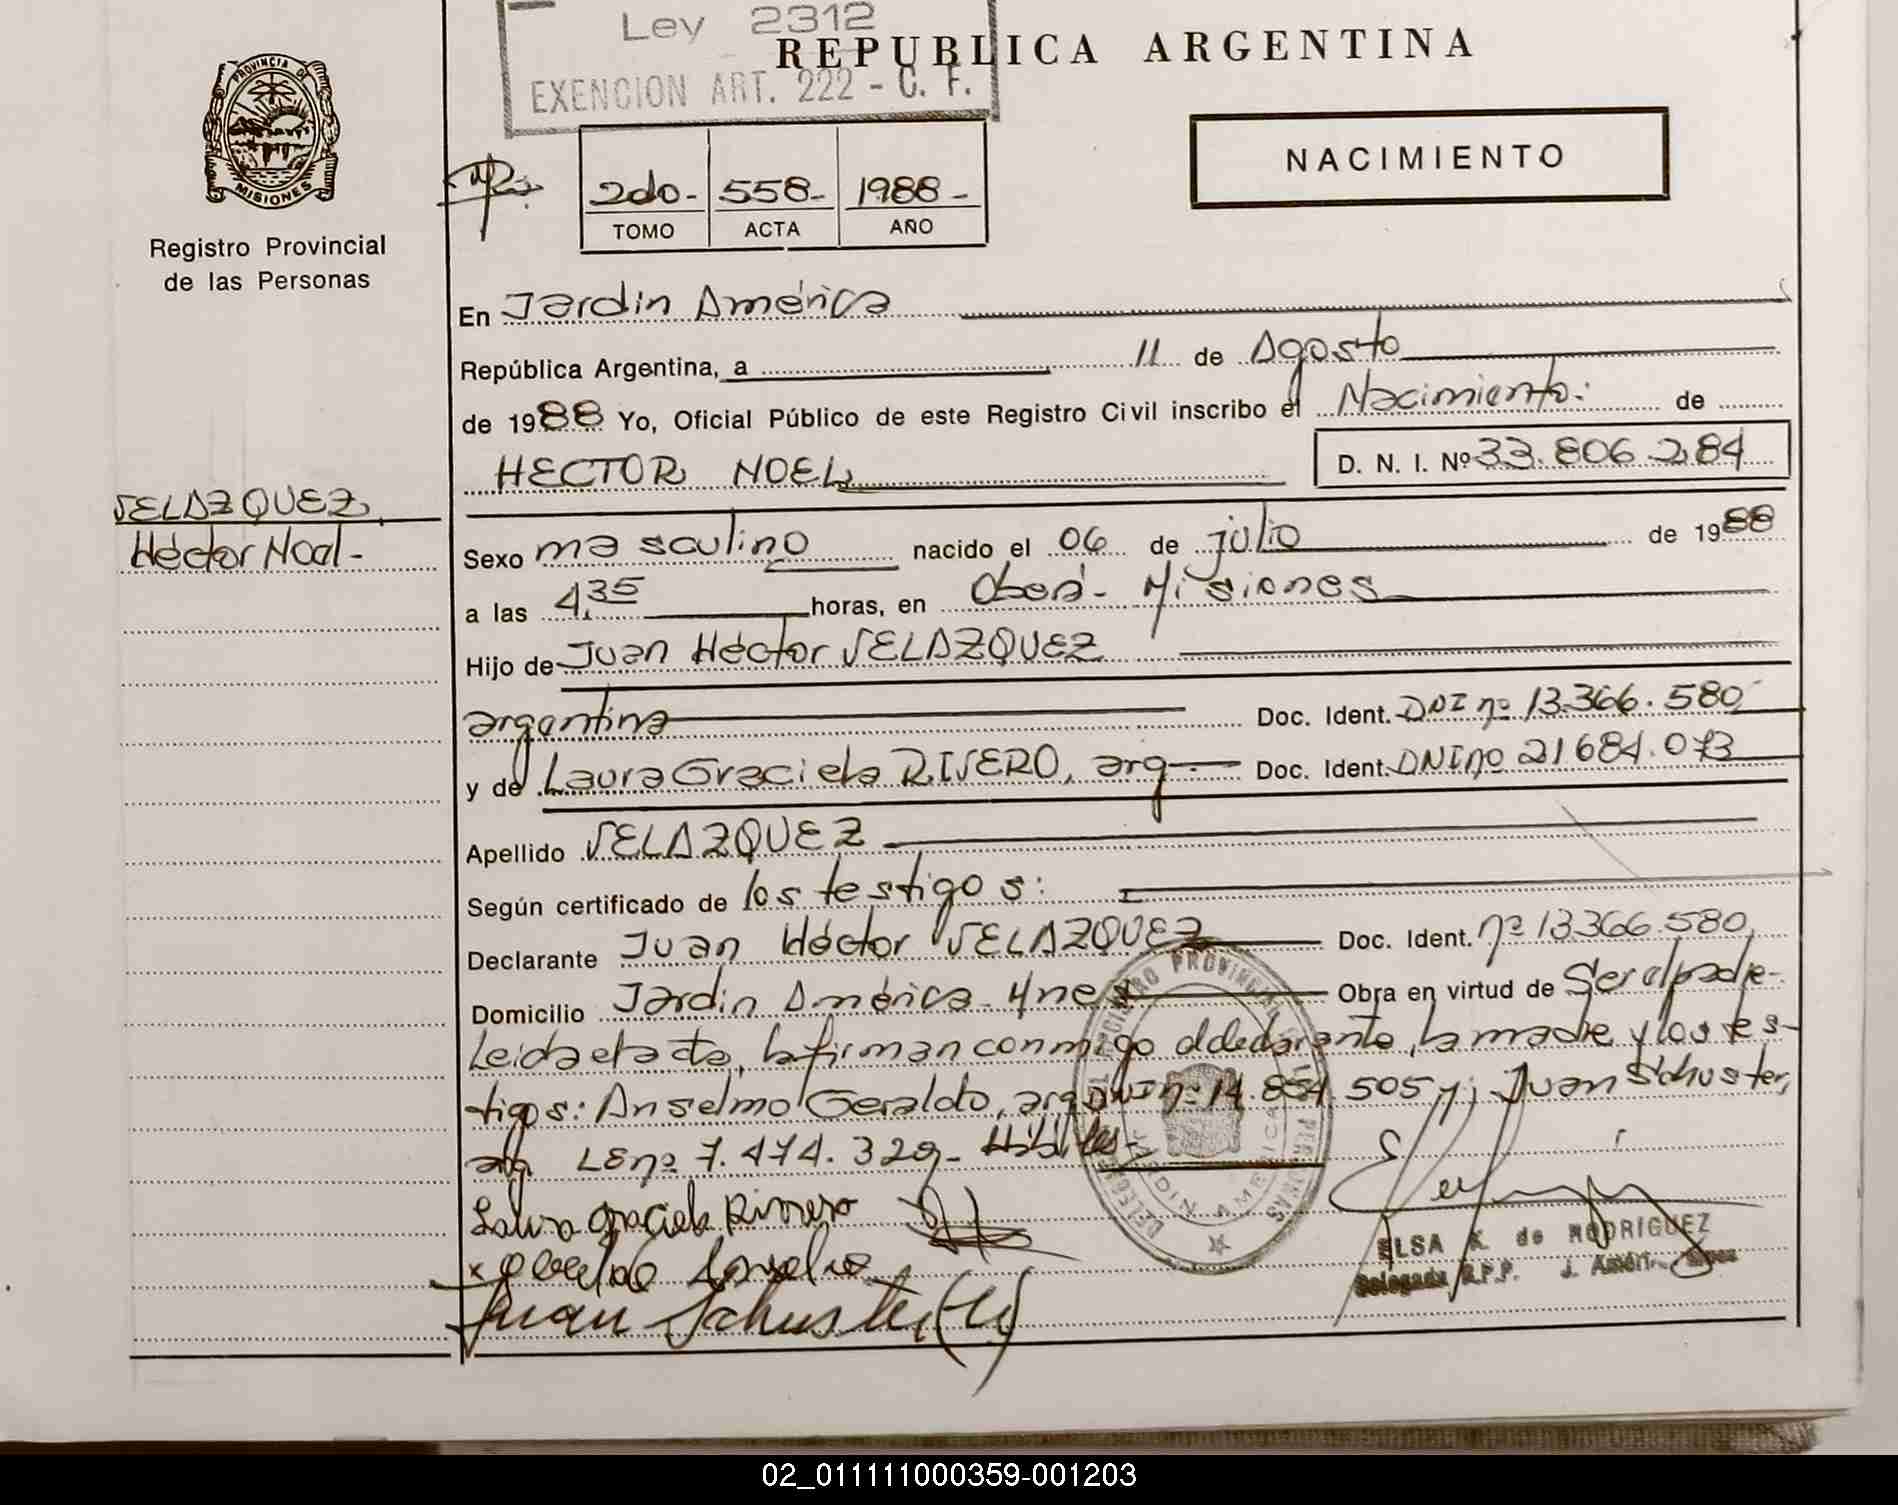 Ley 2312
EXENCION ART. 222 - C. F.
REPUBLICA ARGENTINA
PROVINCIA DE
MISIONES
Registro Provincial
de las Personas
NACIMIENTO
2do- 558- 1988-
TOMO ACTA AÑO
En Jardin América
República Argentina, a 11 de Agosto
de 1988 Yo, Oficial Público de este Registro Civil inscribo el Nacimiento: de
HECTOR NOEL D. N. I. Nº 33.806.284
VELAZQUEZ,
Héctor Noel-
Sexo masculino nacido el 06 de julio de 1988
a las 4,35 horas, en Oberá- Misiones
Hijo de Juan Héctor VELAZQUEZ
argentino Doc. Ident. DNI nº 13.366.580
y de Laura Graciela RIVERO, arg Doc. Ident. DNI nº 21684.073
Apellido VELAZQUEZ
Según certificado de los testigos:
Declarante Juan Héctor VELAZQUEZ Doc. Ident. nº 13.366.580,
Domicilio Jardin América-Mnes Obra en virtud de Ser el padre-
Leida el acta, la firman conmigo el declarante, la madre y los tes-
tigos: Anselmo Geraldo, arg DNI nº 14.854.505 y; Juan Schuster,
arg LE nº 7.474.329- Hábiles-
Laura Graciela Rivero
Juan Schuster
ELSA K. de RODRIGUEZ
Delegada R.P.P. J. Améri. Mnes
02_011111000359-001203